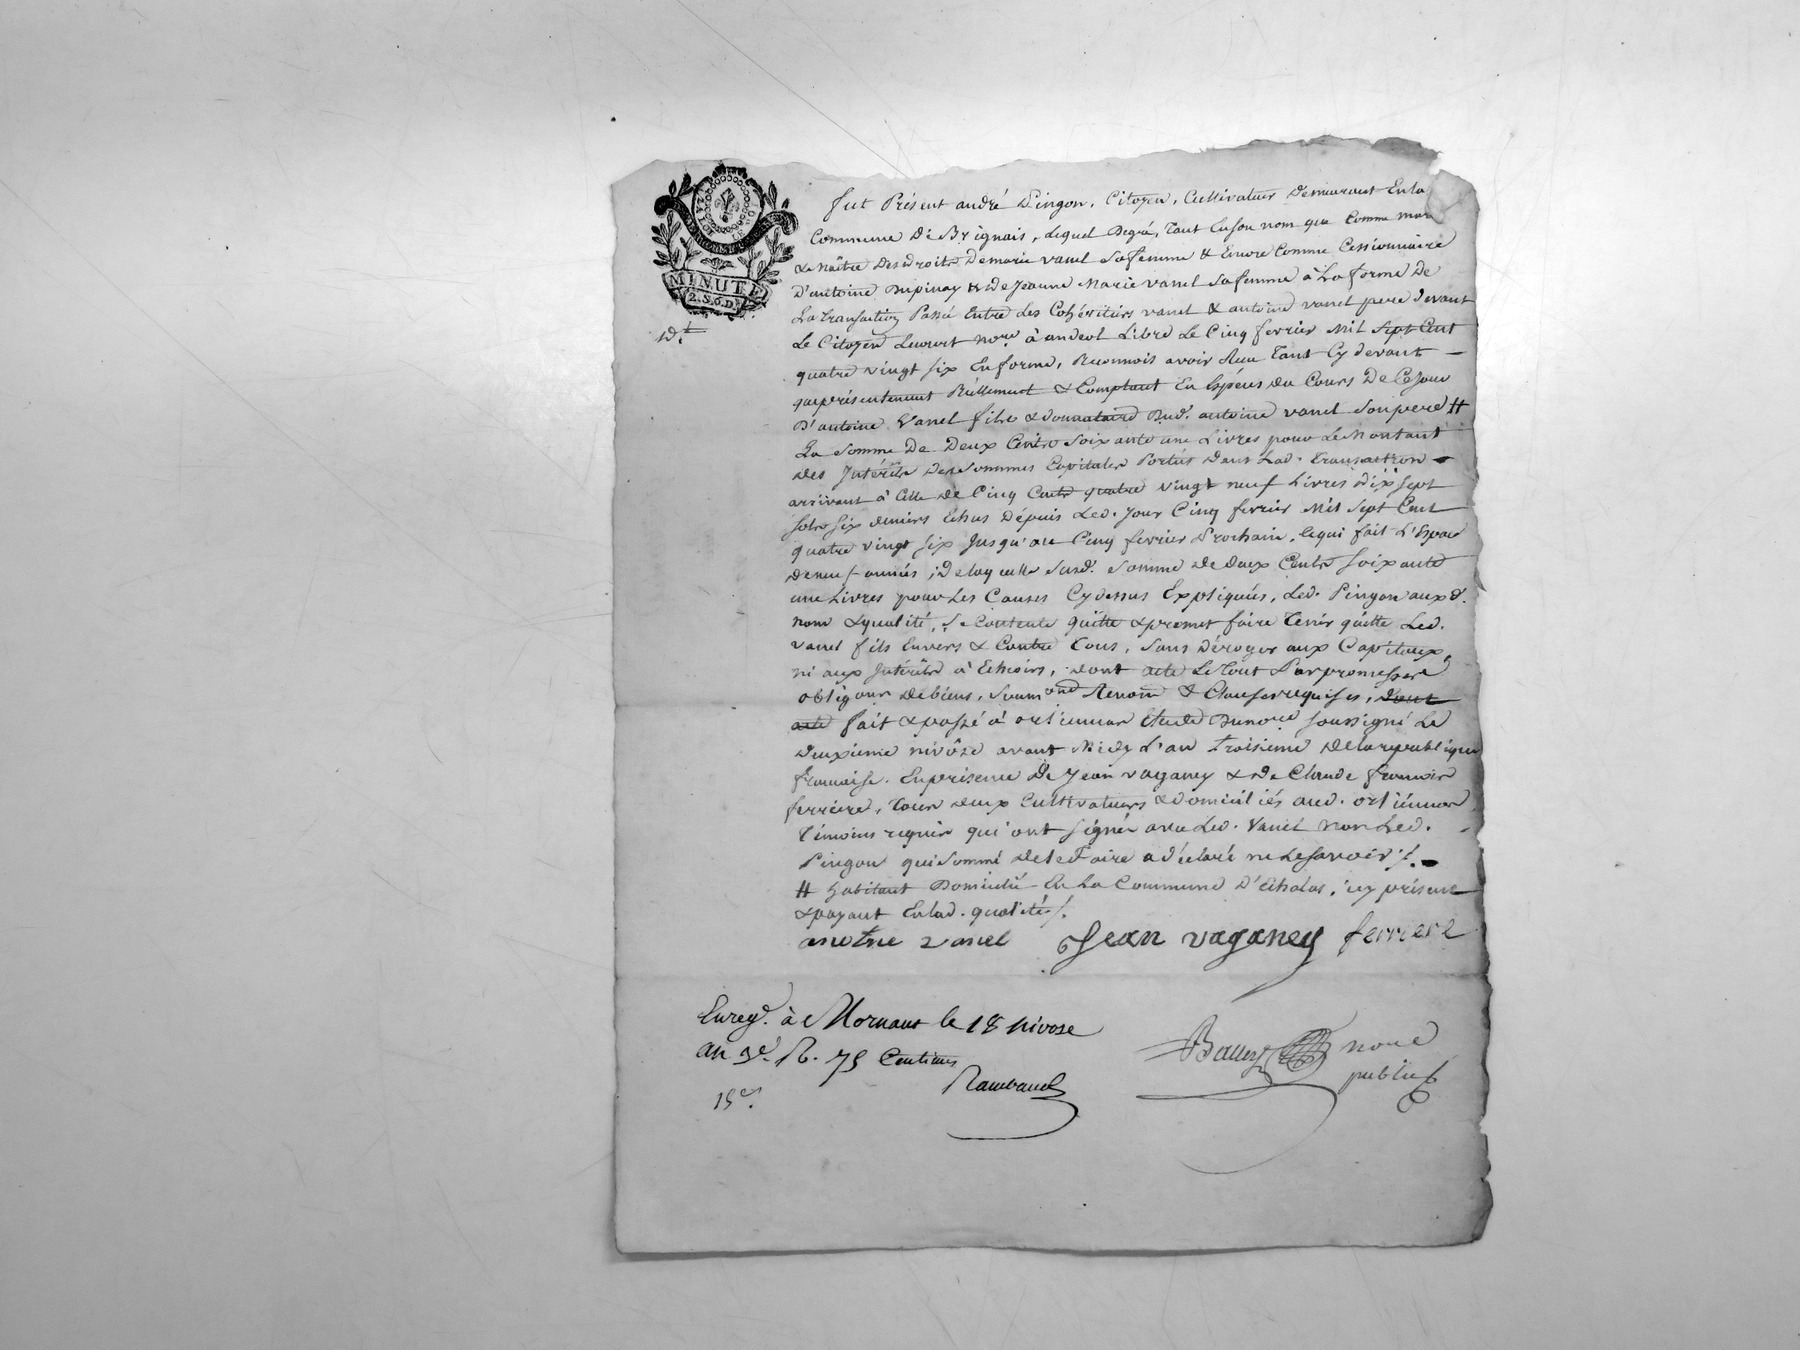 MINUTE
2.S.6.D.
fut Présent andré Pingon, Citoyen, Cultivateur Demeurant En la
Commune De Brignais, Lequel Degré, Tant En son nom que Comme mari
& Maître Des droits De marie vanel sa femme & Encore Comme Cessionnaire
D'antoine Dupinay & de Jeanne Marie vanel sa femme à La forme De
La transaction Passé Entre Les Cohéritiers vanel & antoine vanel pere devant
Le Citoyen nore à andeol Libre Le Cinq fevrier Mil Sept Cent
quatre vingt six En forme, Reconnois avoir Reçu Tant Cy devant —
que présentement Réellement & Comptant En Espéces du Cours De Ce Jour
D'antoine Vanel fils & donnataire Dud. antoine vanel son pere #
La Somme De Deux Cents soixante une Livres pour Le Montant
Des Intérêts Des Sommes Capitales Portées Dans Lad. transaction
arrivant à Celle de Cinq Cents quatre vingt neuf Livres dix sept
sols six deniers Echus Depuis Led. Jour Cinq fevrier Mil Sept Cent
quatre vingt six Jusqu'au Cinq fevrier Prochain, Ce qui fait L'Espace
de neuf années ; De laquelle susd. somme de deux Cents soixante
une Livres pour Les Causes Cy dessus Expliquées, Led. Pingon auxd.
nom & qualité, Se Contente quitte & promet faire Tenir quitte Led.
vanel fils Envers & Contre Tous, sans Déroger aux Capitaux,
ni aux Intérêts à Echoirs, dont acte Le tout Par promesses
obligaon De biens, soumons Renonn & Clauses requises, dont
acte fait & passé à ortiennar étude Du nore soussigné Le
Deuxieme nivôse avant Midy l'an troisieme de la republique
francaise. En présence De Jean vaganey & De Claude francois
ferriere, Tous deux Cultivateurs & domiciliés aud. ortiennar
témoins requis qui ont signés avec Led. Vanel non Led.
Pingon qui Sommé de le Faire a déclaré ne Le savoir /.
# habitant Domicilié En La Commune D'Echalas, icy présent
& payant En lad. qualité /.
anotne vanel Jean vaganey ferriere
Enregé. à Mornant le 18 Nivose
an 3e. R. 75 Centimes
Rambaud
nore
public
15s.